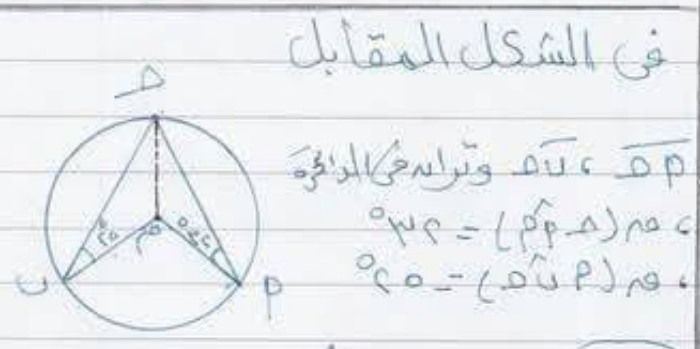 فى الشكل المقابل
أحـ ، بحـ وتران فى الدائرة
، ق(حـ أ م) = ٣٢°
، ق(م ب حـ) = ٢٥°
حـ
م
٢٥°
ب
أ